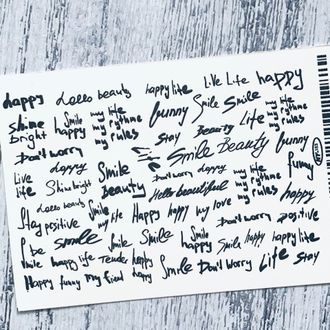 happy Hello beauty happy life Live Life happy
Shine bright Smile happy my life my rythme my rules funny Smile Smile my life my rythme my rules
Don't worry Stay Beauty Life funny
Live life happy Smile Smile Beauty funny
Shine bright Beauty Hello beautiful my life my rythme my rules happy
Hello beauty Smile
Stay positive my life Happy happy my love Don't worry positive
be smile Smile Smile Smile happy Smile happy happy life
Smile happy life Tender happy
Happy funny My friend happy Smile Don't Worry Life Stay